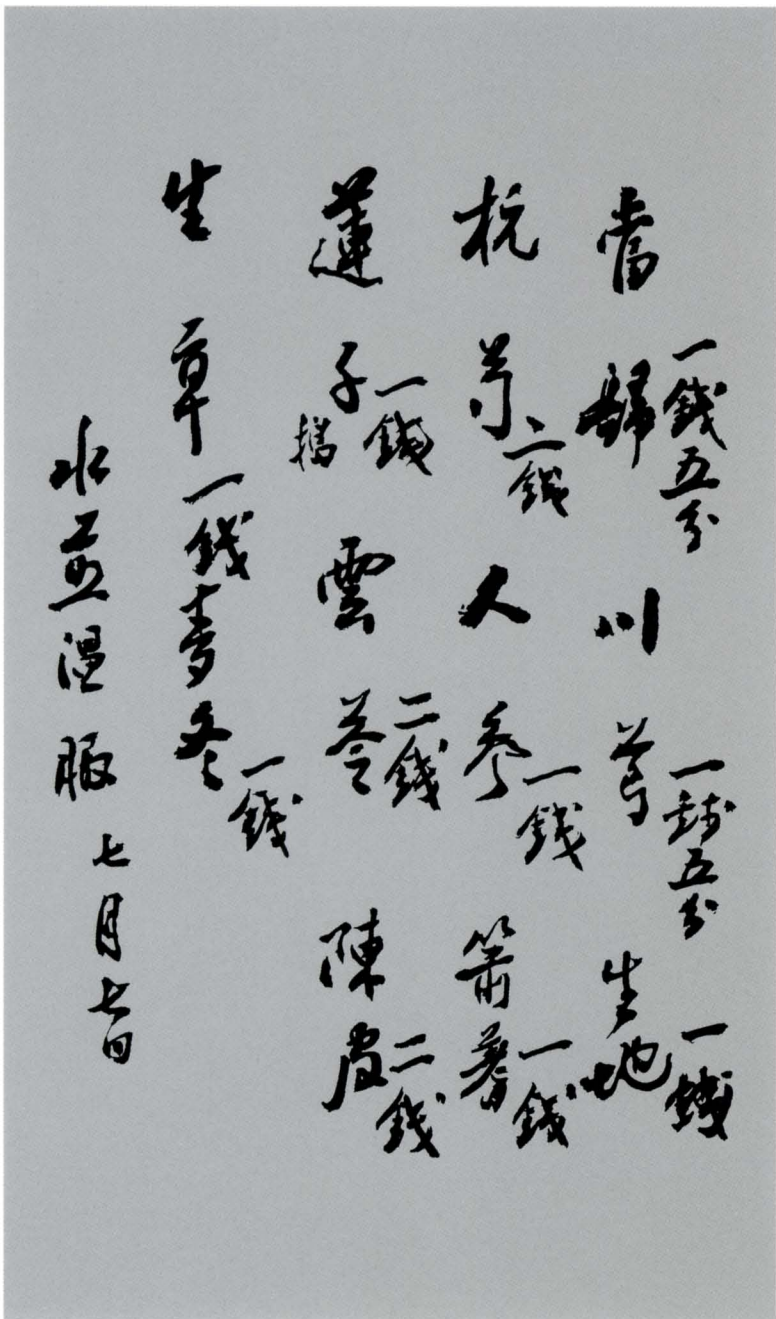 當歸一錢五分川芎一錢五分生地一錢
杭芍二錢人參一錢箭蓍一錢
蓮子一錢搗雲苓二錢陳皮二錢
生草一錢麥冬一錢
水煎溫服七月七日